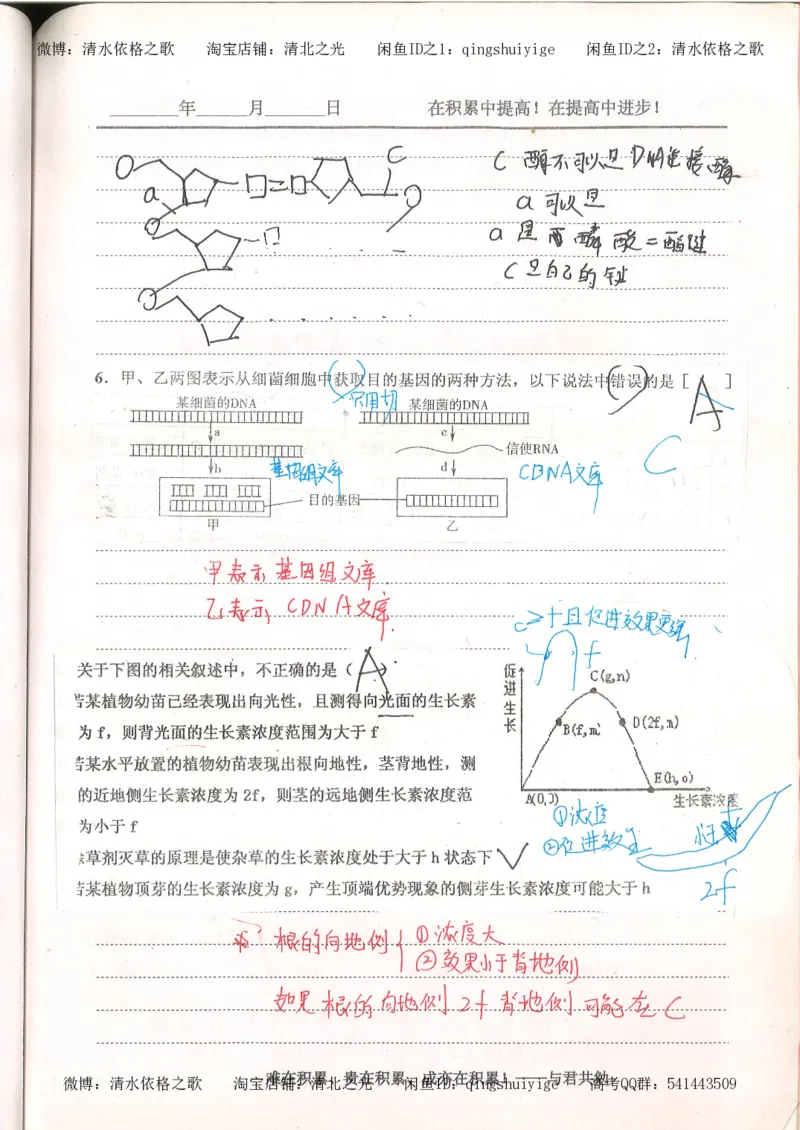 微博：清水依格之歌 淘宝店铺：清北之光 闲鱼ID之1：qingshuiyige 闲鱼ID之2：清水依格之歌
年 月 日 在积累中提高！在提高中进步！
C 酶不可以是DNA连接酶
a 可以是
a 是磷酸二酯键
C 是自己的
C
a
6. 甲、乙两图表示从细菌细胞中获取目的基因的两种方法，以下说法中错误的是［A］
某细菌的DNA 只用切 某细菌的DNA
C
a c
信使RNA
b 基因组文库 d CDNA文库
目的基因
甲 乙
甲表示基因组文库.
乙表示 CDNA文库.
c≥十且促进效果更强
f
关于下图的相关叙述中，不正确的是（A）
若某植物幼苗已经表现出向光性，且测得向光面的生长素
为 f，则背光面的生长素浓度范围为大于 f
若某水平放置的植物幼苗表现出根向地性，茎背地性，测
的近地侧生长素浓度为 2f，则茎的远地侧生长素浓度范
为小于 f
除草剂灭草的原理是使杂草的生长素浓度处于大于 h 状态下
若某植物顶芽的生长素浓度为 g，产生顶端优势现象的侧芽生长素浓度可能大于 h
促进生长
C(g,n)
B(f,m) D(2f,m)
E(h,o)
A(0,0) 生长素浓度
①浓度
②促进效果
2f
※ 根的向地侧 ①浓度大
②效果小于背地侧
如果根的向地侧 2f 背地侧可能在 C
难在积累，贵在积累，成亦在积累！——与君共勉
微博：清水依格之歌 淘宝店铺：清北之光 闲鱼ID：qingshuiyige 高考QQ群：541443509